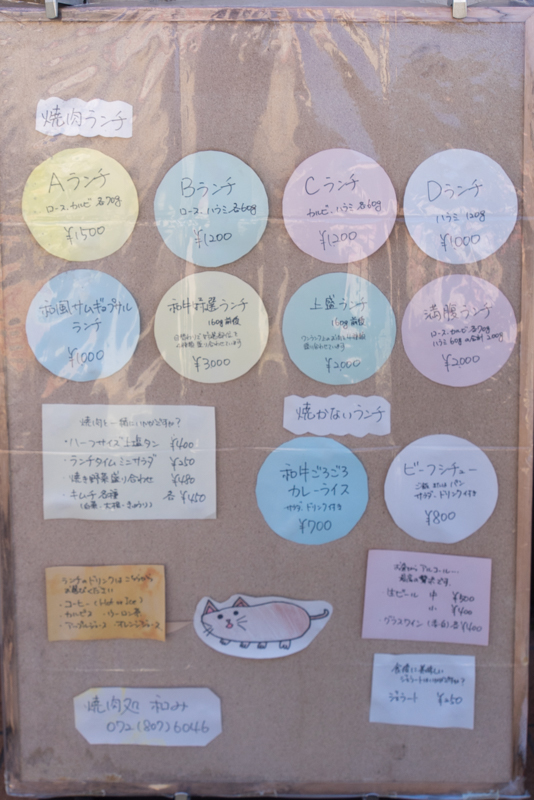 焼肉ランチ
Aランチ
ロース、カルビ 各70g
¥1500
Bランチ
ロース、ハラミ 各60g
¥1200
Cランチ
カルビ、ハラミ 各60g
¥1200
Dランチ
ハラミ 120g
¥1000
和風サムギョプサル
ランチ
¥1000
和牛特選ランチ
160g前後
¥3000
上盛ランチ
160g前後
¥2000
満腹ランチ
ロース、カルビ 各70g
ハラミ 60g の合計 200g
¥2000
焼肉と一緒にいかがですか?
・ハーフサイズ上塩タン ¥400
・ランチタイムミニサラダ ¥250
・焼き野菜盛り合わせ ¥480
・キムチ各種 各 ¥450
(白菜・大根・きゅうり)
焼かないランチ
和牛ごろごろ
カレーライス
サラダ、ドリンク付き
¥700
ビーフシチュー
ご飯 または パン
サラダ、ドリンク付き
¥800
ランチのドリンクはこちらから
お選びください
・コーヒー (Hot or Ice)
・カルピス ・ウーロン茶
・アップルジュース ・オレンジジュース
お昼からアルコール…
最高の贅沢です。
生ビール 中 ¥500
小 ¥400
グラスワイン (赤・白) 各¥400
食後に美味しい
ジェラートはいかがですか?
ジェラート ¥250
焼肉処 和み
072(807)6046